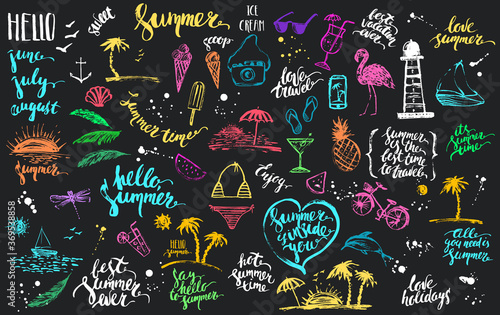 HELLO
sweet
Summer
ICE
CREAM
best
vacation
ever
love
summer
june
july
august
scoop
love
travel
summer time
summer
is the
best time
to travel
it's
summer
time
hello,
summer
Enjoy
Summer
inside
you
HELLO
SUMMER
all
you need is
summer
best
Summer
ever
say
hello
to summer
hot
summer
time
love
holidays
Adobe Stock | #369528858